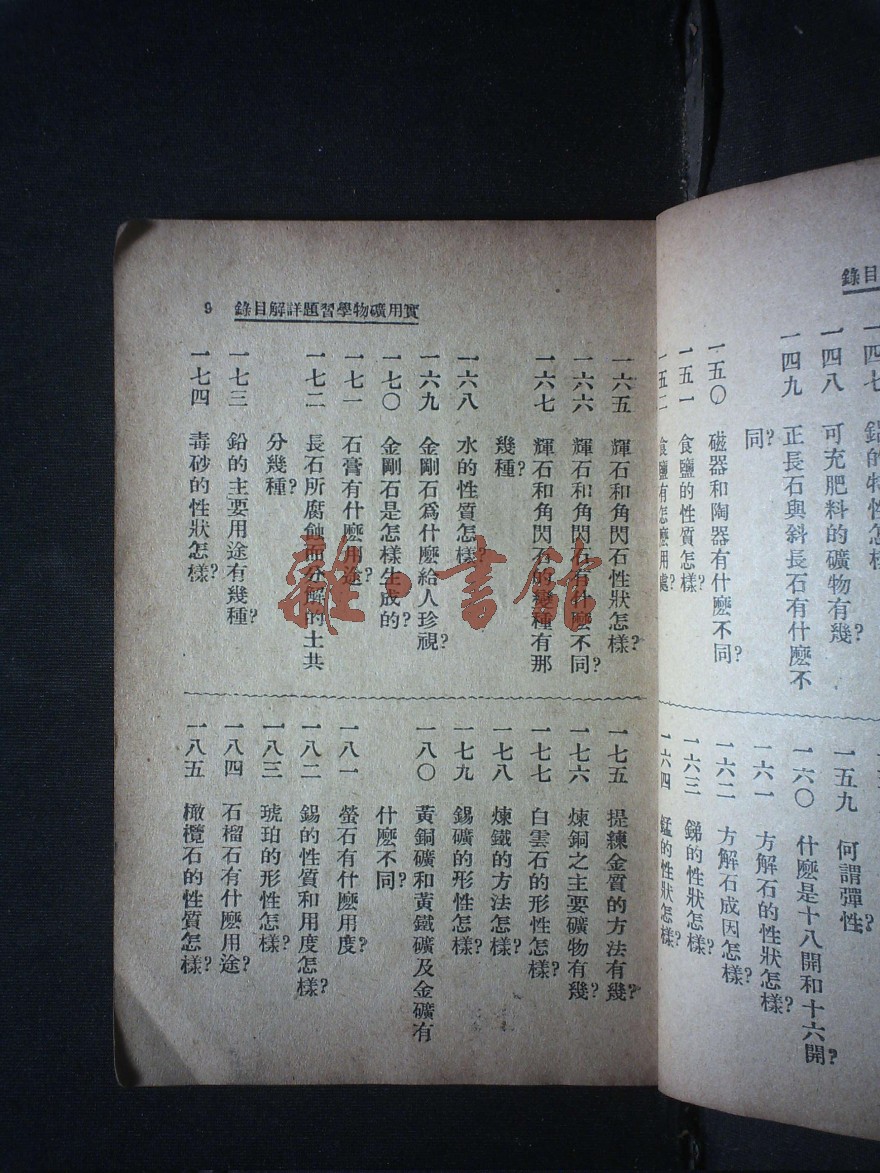 目錄
一四七 鋁的特性怎樣
一四八 可充肥料的礦物有幾?
一四九 正長石與斜長石有什麽不
同?
一五〇 磁器和陶器有什麽不同?
一五一 食鹽的性質怎樣?
一五二 食鹽有怎麽用處?
一五九 何謂彈性?
一六〇 什麽是十八開和十六開?
一六一 方解石的性狀怎樣?
一六二 方解石成因怎樣?
一六三 銻的性狀怎樣?
一六四 錳的性狀怎樣?
實用礦物學習題詳解目錄 9
一六五 輝石和角閃石性狀怎樣?
一六六 輝石和角閃石有什麽不同?
一六七 輝石和角閃石的變種有那
幾種?
一六八 水的性質怎樣?
一六九 金剛石爲什麽給人珍視?
一七〇 金剛石是怎樣生成的?
一七一 石膏有什麽用途?
一七二 長石所腐蝕而分解的土共
分幾種?
一七三 鉛的主要用途有幾種?
一七四 毒砂的性狀怎樣?
一七五 提練金質的方法有幾?
一七六 煉銅之主要礦物有幾?
一七七 白雲石的形性怎樣?
一七八 煉鐵的方法怎樣?
一七九 錫礦的形性怎樣?
一八〇 黃銅礦和黃鐵礦及金礦有
什麽不同?
一八一 螢石有什麽用度?
一八二 錫的性質和用度怎樣?
一八三 琥珀的形性怎樣?
一八四 石榴石有什麽用途?
一八五 橄欖石的性質怎樣?
雜書館